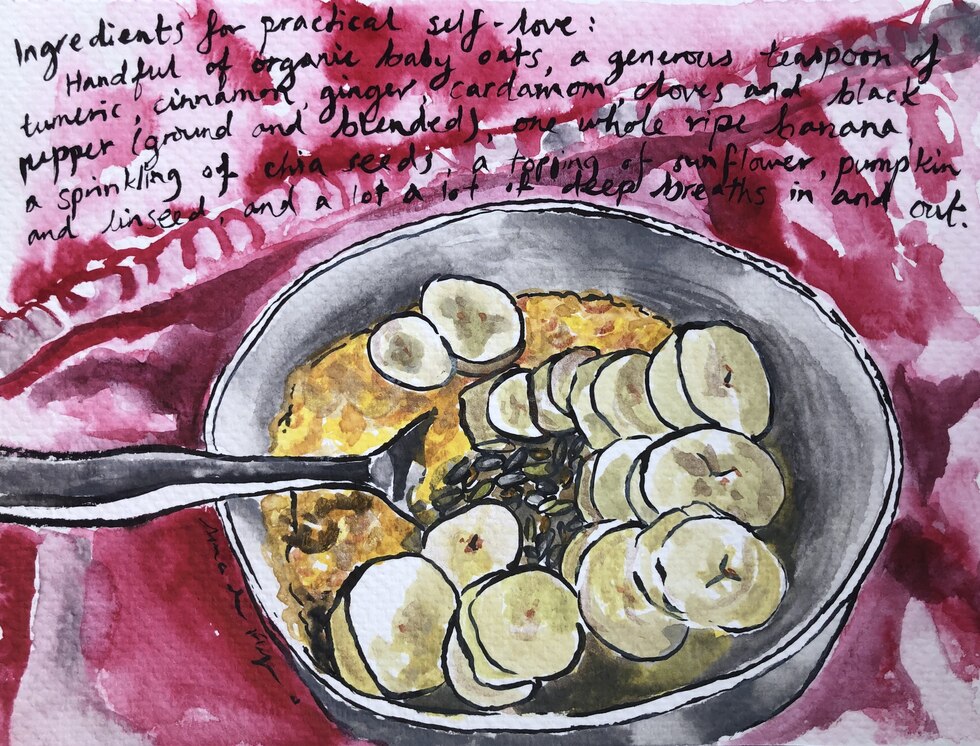 Ingredients for practical self-love:
Handful of organic baby oats, a generous teaspoon of
tumeric, cinnamon, ginger, cardamom, cloves and black
pepper (ground and blended), one whole ripe banana
a sprinkling of chia seeds, a topping of sunflower, pumpkin
and linseed, and a lot a lot of deep breaths in and out.